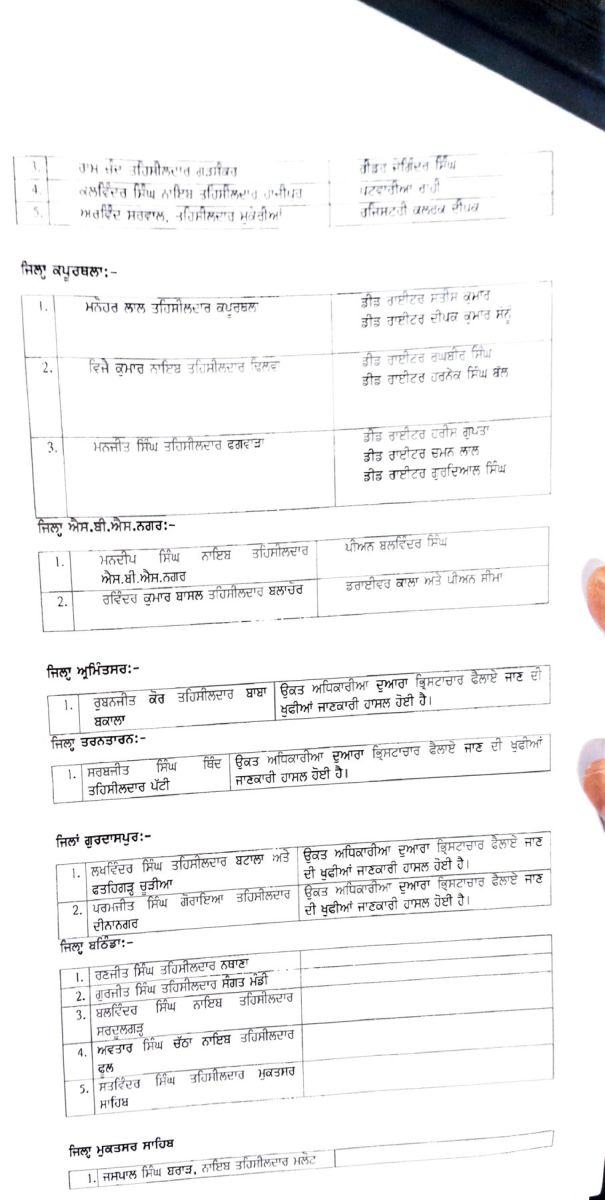 3. ਰਾਮ ਚੰਦ ਤਹਿਸੀਲਦਾਰ ਗੜਸ਼ੰਕਰ ਰੀਡਰ ਜੋਗਿੰਦਰ ਸਿੰਘ
4. ਕਲਵਿੰਦਰ ਸਿੰਘ ਨਾਇਬ ਤਹਿਸੀਲਦਾਰ ਹਾਜੀਪਰ ਪਟਵਾਰੀਆ ਰਾਹੀ
5. ਅਰਵਿੰਦ ਸਰਵਾਲ, ਤਹਿਸੀਲਦਾਰ ਮੁਕੇਰੀਆਂ ਰਜਿਸਟਰੀ ਕਲਰਕ ਦੀਪਕ
ਜਿਲ੍ਹਾ ਕਪੂਰਥਲਾ:-
1. ਮਨੋਹਰ ਲਾਲ ਤਹਿਸੀਲਦਾਰ ਕਪੂਰਥਲਾ ਡੀਡ ਰਾਈਟਰ ਸਤੀਸ ਕੁਮਾਰ
ਡੀਡ ਰਾਈਟਰ ਦੀਪਕ ਕੁਮਾਰ ਸੰਨੂੰ
2. ਵਿਜੈ ਕੁਮਾਰ ਨਾਇਬ ਤਹਿਸੀਲਦਾਰ ਢਿਲਵਾ ਡੀਡ ਰਾਈਟਰ ਰਘਬੀਰ ਸਿੰਘ
ਡੀਡ ਰਾਈਟਰ ਹਰਨੇਕ ਸਿੰਘ ਬੱਲ
3. ਮਨਜੀਤ ਸਿੰਘ ਤਹਿਸੀਲਦਾਰ ਫਗਵਾੜਾ ਡੀਡ ਰਾਈਟਰ ਹਰੀਸ ਗੁਪਤਾ
ਡੀਡ ਰਾਈਟਰ ਚਮਨ ਲਾਲ
ਡੀਡ ਰਾਈਟਰ ਗੁਰਦਿਆਲ ਸਿੰਘ
ਜਿਲ੍ਹਾ ਐਸ.ਬੀ.ਐਸ.ਨਗਰ:-
1. ਮਨਦੀਪ ਸਿੰਘ ਨਾਇਬ ਤਹਿਸੀਲਦਾਰ ਪੀਅਨ ਬਲਵਿੰਦਰ ਸਿੰਘ
ਐਸ.ਬੀ.ਐਸ.ਨਗਰ
2. ਰਵਿੰਦਰ ਕੁਮਾਰ ਬਾਂਸਲ ਤਹਿਸੀਲਦਾਰ ਬਲਾਚੌਰ ਡਰਾਈਵਰ ਕਾਲਾ ਅਤੇ ਪੀਅਨ ਸੀਮਾ
ਜਿਲ੍ਹਾ ਅ੍ਰਮਿੰਤਸਰ:-
1. ਰੁਬਨਜੀਤ ਕੋਰ ਤਹਿਸੀਲਦਾਰ ਬਾਬਾ ਉਕਤ ਅਧਿਕਾਰੀਆ ਦੁਆਰਾ ਭ੍ਰਿਸਟਾਚਾਰ ਫੈਲਾਏ ਜਾਣ ਦੀ
ਬਕਾਲਾ ਖੁਫੀਆਂ ਜਾਣਕਾਰੀ ਹਾਸਲ ਹੋਈ ਹੈ।
ਜਿਲ੍ਹਾ ਤਰਨਤਾਰਨ:-
1. ਸਰਬਜੀਤ ਸਿੰਘ ਥਿੰਦ ਉਕਤ ਅਧਿਕਾਰੀਆ ਦੁਆਰਾ ਭ੍ਰਿਸਟਾਚਾਰ ਫੈਲਾਏ ਜਾਣ ਦੀ ਖੁਫੀਆਂ
ਤਹਿਸੀਲਦਾਰ ਪੱਟੀ ਜਾਣਕਾਰੀ ਹਾਸਲ ਹੋਈ ਹੈ।
ਜਿਲਾਂ ਗੁਰਦਾਸਪੁਰ:-
1. ਲਖਵਿੰਦਰ ਸਿੰਘ ਤਹਿਸੀਲਦਾਰ ਬਟਾਲਾ ਅਤੇ ਉਕਤ ਅਧਿਕਾਰੀਆ ਦੁਆਰਾ ਭ੍ਰਿਸਟਾਚਾਰ ਫੈਲਾਏ ਜਾਣ
ਫਤਹਿਗੜ੍ਹ ਚੂੜੀਆ ਦੀ ਖੁਫੀਆਂ ਜਾਣਕਾਰੀ ਹਾਸਲ ਹੋਈ ਹੈ।
2. ਪਰਮਜੀਤ ਸਿੰਘ ਗੋਰਾਇਆ ਤਹਿਸੀਲਦਾਰ ਉਕਤ ਅਧਿਕਾਰੀਆ ਦੁਆਰਾ ਭ੍ਰਿਸਟਾਚਾਰ ਫੈਲਾਏ ਜਾਣ
ਦੀਨਾਨਗਰ ਦੀ ਖੁਫੀਆਂ ਜਾਣਕਾਰੀ ਹਾਸਲ ਹੋਈ ਹੈ।
ਜਿਲ੍ਹਾ ਬਠਿੰਡਾ:-
1. ਰਣਜੀਤ ਸਿੰਘ ਤਹਿਸੀਲਦਾਰ ਨਥਾਣਾ
2. ਗੁਰਜੀਤ ਸਿੰਘ ਤਹਿਸੀਲਦਾਰ ਸੰਗਤ ਮੰਡੀ
3. ਬਲਵਿੰਦਰ ਸਿੰਘ ਨਾਇਬ ਤਹਿਸੀਲਦਾਰ
ਸਰਦੂਲਗੜ੍ਹ
4. ਅਵਤਾਰ ਸਿੰਘ ਚੱਠਾ ਨਾਇਬ ਤਹਿਸੀਲਦਾਰ
ਫੂਲ
5. ਸਤਵਿੰਦਰ ਸਿੰਘ ਤਹਿਸੀਲਦਾਰ ਮੁਕਤਸਰ
ਸਾਹਿਬ
ਜਿਲ੍ਹਾ ਮੁਕਤਸਰ ਸਾਹਿਬ
1. ਜਸਪਾਲ ਸਿੰਘ ਬਰਾੜ, ਨਾਇਬ ਤਹਿਸੀਲਦਾਰ ਮਲੋਟ